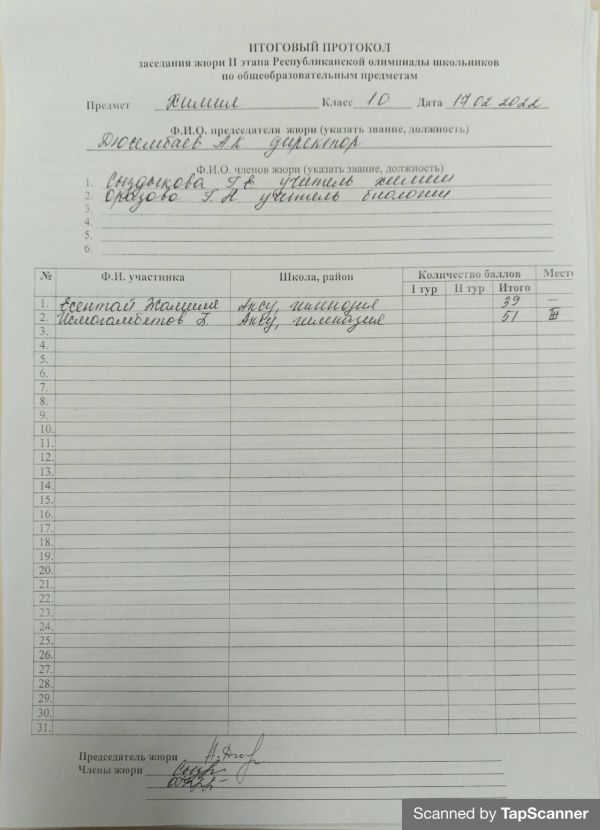 ИТОГОВЫЙ ПРОТОКОЛ
заседания жюри II этапа Республиканской олимпиады школьников
по общеобразовательным предметам
Предмет Химия Класс 10 Дата 17 02 2022
Ф.И.О. председателя жюри (указать звание, должность)
Дюсембаев А К директор
Ф.И.О. членов жюри (указать звание, должность)
1. Сыздыкова Г Е учитель химии
2. Оразова Г. К учитель биологии
3.
4.
5.
6.
№ Ф.И. участника Школа, район Количество баллов Место
I тур II тур Итого
1. Есентай Жамиля Аксу, гимназия 39 –
2. Исмагамбетов Аксу, гимназия 51 III
3.
4.
5.
6.
7.
8.
9.
10.
11.
12.
13.
14.
15.
16.
17.
18.
19.
20.
21.
22.
23.
24.
25.
26.
27.
28.
29.
30.
31.
Председатель жюри
Члены жюри
Scanned by TapScanner